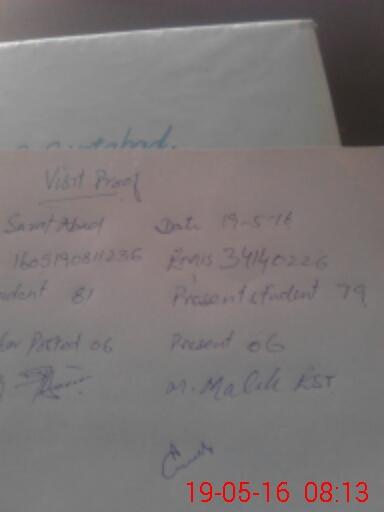 Visit Proof
Sarat Abad Date 19-5-16
1605190811236 Emis 34140226
udent 81 Present student 79
Posted 06 Present 06
M. Malik EST
19-05-16 08:13